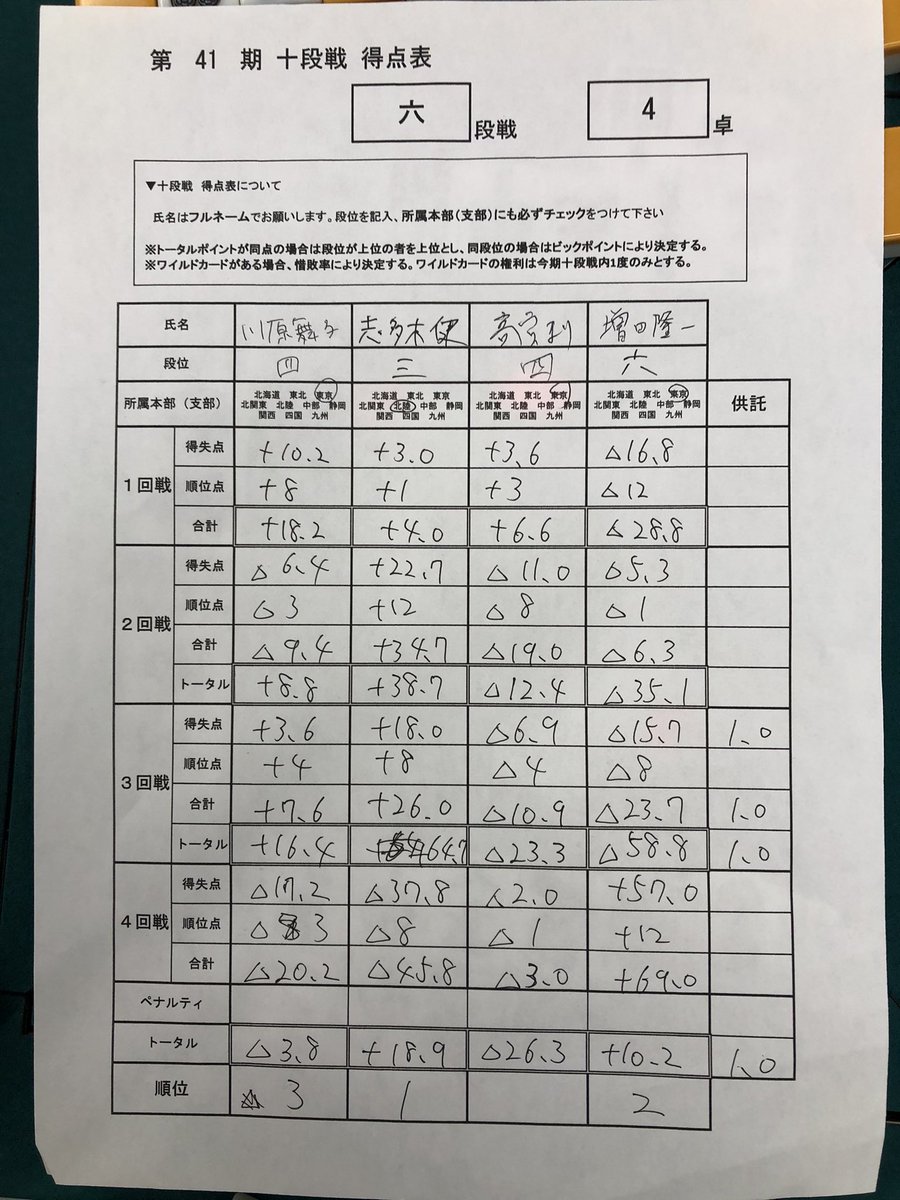 第 41 期 十段戦 得点表
六 段戦 4 卓
▼十段戦 得点表について
氏名はフルネームでお願いします。段位を記入、所属本部(支部)にも必ずチェックをつけて下さい
※トータルポイントが同点の場合は段位が上位の者を上位とし、同段位の場合はビックポイントにより決定する。
※ワイルドカードがある場合、惜敗率により決定する。ワイルドカードの権利は今期十段戦内1度のみとする。
氏名 川原舞子 志多木健 高宮利 増田隆一
段位 四 三 四 六
北海道 東北 東京 北海道 東北 東京 北海道 東北 東京 北海道 東北 東京
所属本部(支部) 北関東 北陸 中部 静岡 北関東 北陸 中部 静岡 北関東 北陸 中部 静岡 北関東 北陸 中部 静岡 供託
関西 四国 九州 関西 四国 九州 関西 四国 九州 関西 四国 九州
得失点 +10.2 +3.0 +3.6 △16.8
1回戦 順位点 +8 +1 +3 △12
合計 +18.2 +4.0 +6.6 △28.8
得失点 △6.4 +22.7 △11.0 △5.3
2回戦 順位点 △3 +12 △8 △1
合計 △9.4 +34.7 △19.0 △6.3
トータル +8.8 +38.7 △12.4 △35.1
得失点 +3.6 +18.0 △6.9 △15.7 1.0
3回戦 順位点 +4 +8 △4 △8
合計 +7.6 +26.0 △10.9 △23.7 1.0
トータル +16.4 +64.7 △23.3 △58.8 1.0
得失点 △17.2 △37.8 △2.0 +57.0
4回戦 順位点 △3 △8 △1 +12
合計 △20.2 △45.8 △3.0 +69.0
ペナルティ
トータル △3.8 +18.9 △26.3 +10.2 1.0
順位 3 1 2